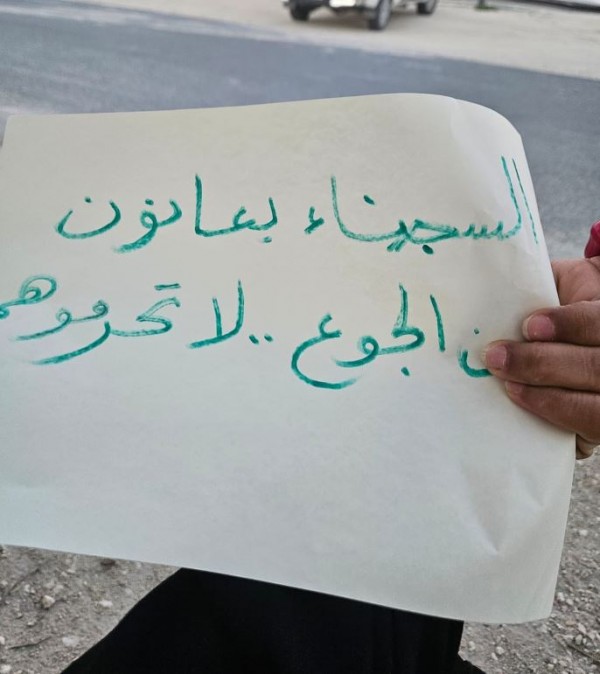 السجيناء يعانون
ن الجوع .. لا تحرموهم